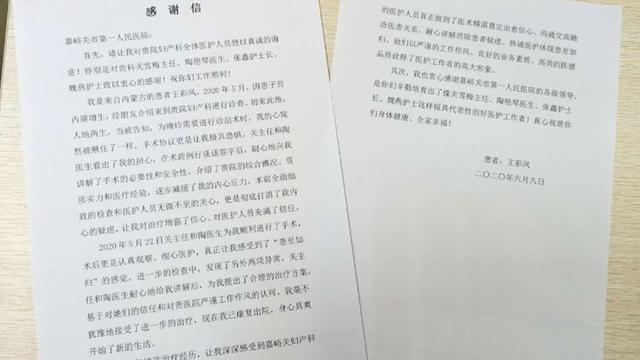 感谢信
嘉峪关市第一人民医院：
首先，请让我对贵院妇产科全体医护人员致以真诚的谢
意！特别是对贵科关雪梅主任、陶艳琴医生、张鑫护士长、
魏燕护士致以衷心的感谢！祝你们工作顺利！
我是来自内蒙古的患者王彩凤，2020年5月，因患子宫
内膜增生，经朋友介绍来到贵院妇产科进行诊查。初来此地，
人地两生，当被告知，为确诊需要进行诊刮术时，我的心蓦
然被揪住了一样。手术协议更是让我极具恐惧。关主任和陶
医生看出了我的担心，在术前例行谈话签字后，耐心地向我
讲解了手术的必要性和安全性，介绍了贵院的综合概况、资
质实力和医疗经验，逐步减缓了我的内心压力。术前全面细
致的检查和医护人员无微不至的关心，更是彻底打消了我内
心的疑虑，让我对治疗增强了信心，对医护人员充满了信任。
2020年5月22日关主任和陶医生为我顺利进行了手术，
术后更是认真观察、细心医护，真正让我感受到了“患至如
归”的感觉。进一步的检查中，发现了另外两项异常，关主
任和陶医生耐心地给我讲解后，为我提出了合理的治疗方案，
基于对她们的信任和对贵医院严谨工作作风的认可，我毫不
犹豫地接受了进一步的治疗，现在我已康复出院，身心具爽
开始了新的生活。
治疗经历，让我深深感受到嘉峪关妇产科
的医护人员真正做到了医术精湛奠定治愈信心、沟通交流融
洽医患关系、耐心讲解消除患者疑虑、热诚医护体现患至如
归。她们以严谨的工作作风、良好的业务素质、高尚的医德
品质诠释了医护工作者的高大形象。
其次，我也衷心感谢嘉峪关市第一人民医院的各级领导，
是你们辛勤培育出了像关雪梅主任、陶艳琴医生、张鑫护士
长、魏燕护士这样极具代表性的好医护工作者！真心祝愿你
们身体健康、全家幸福！
患者：王彩凤
二〇二〇年六月八日